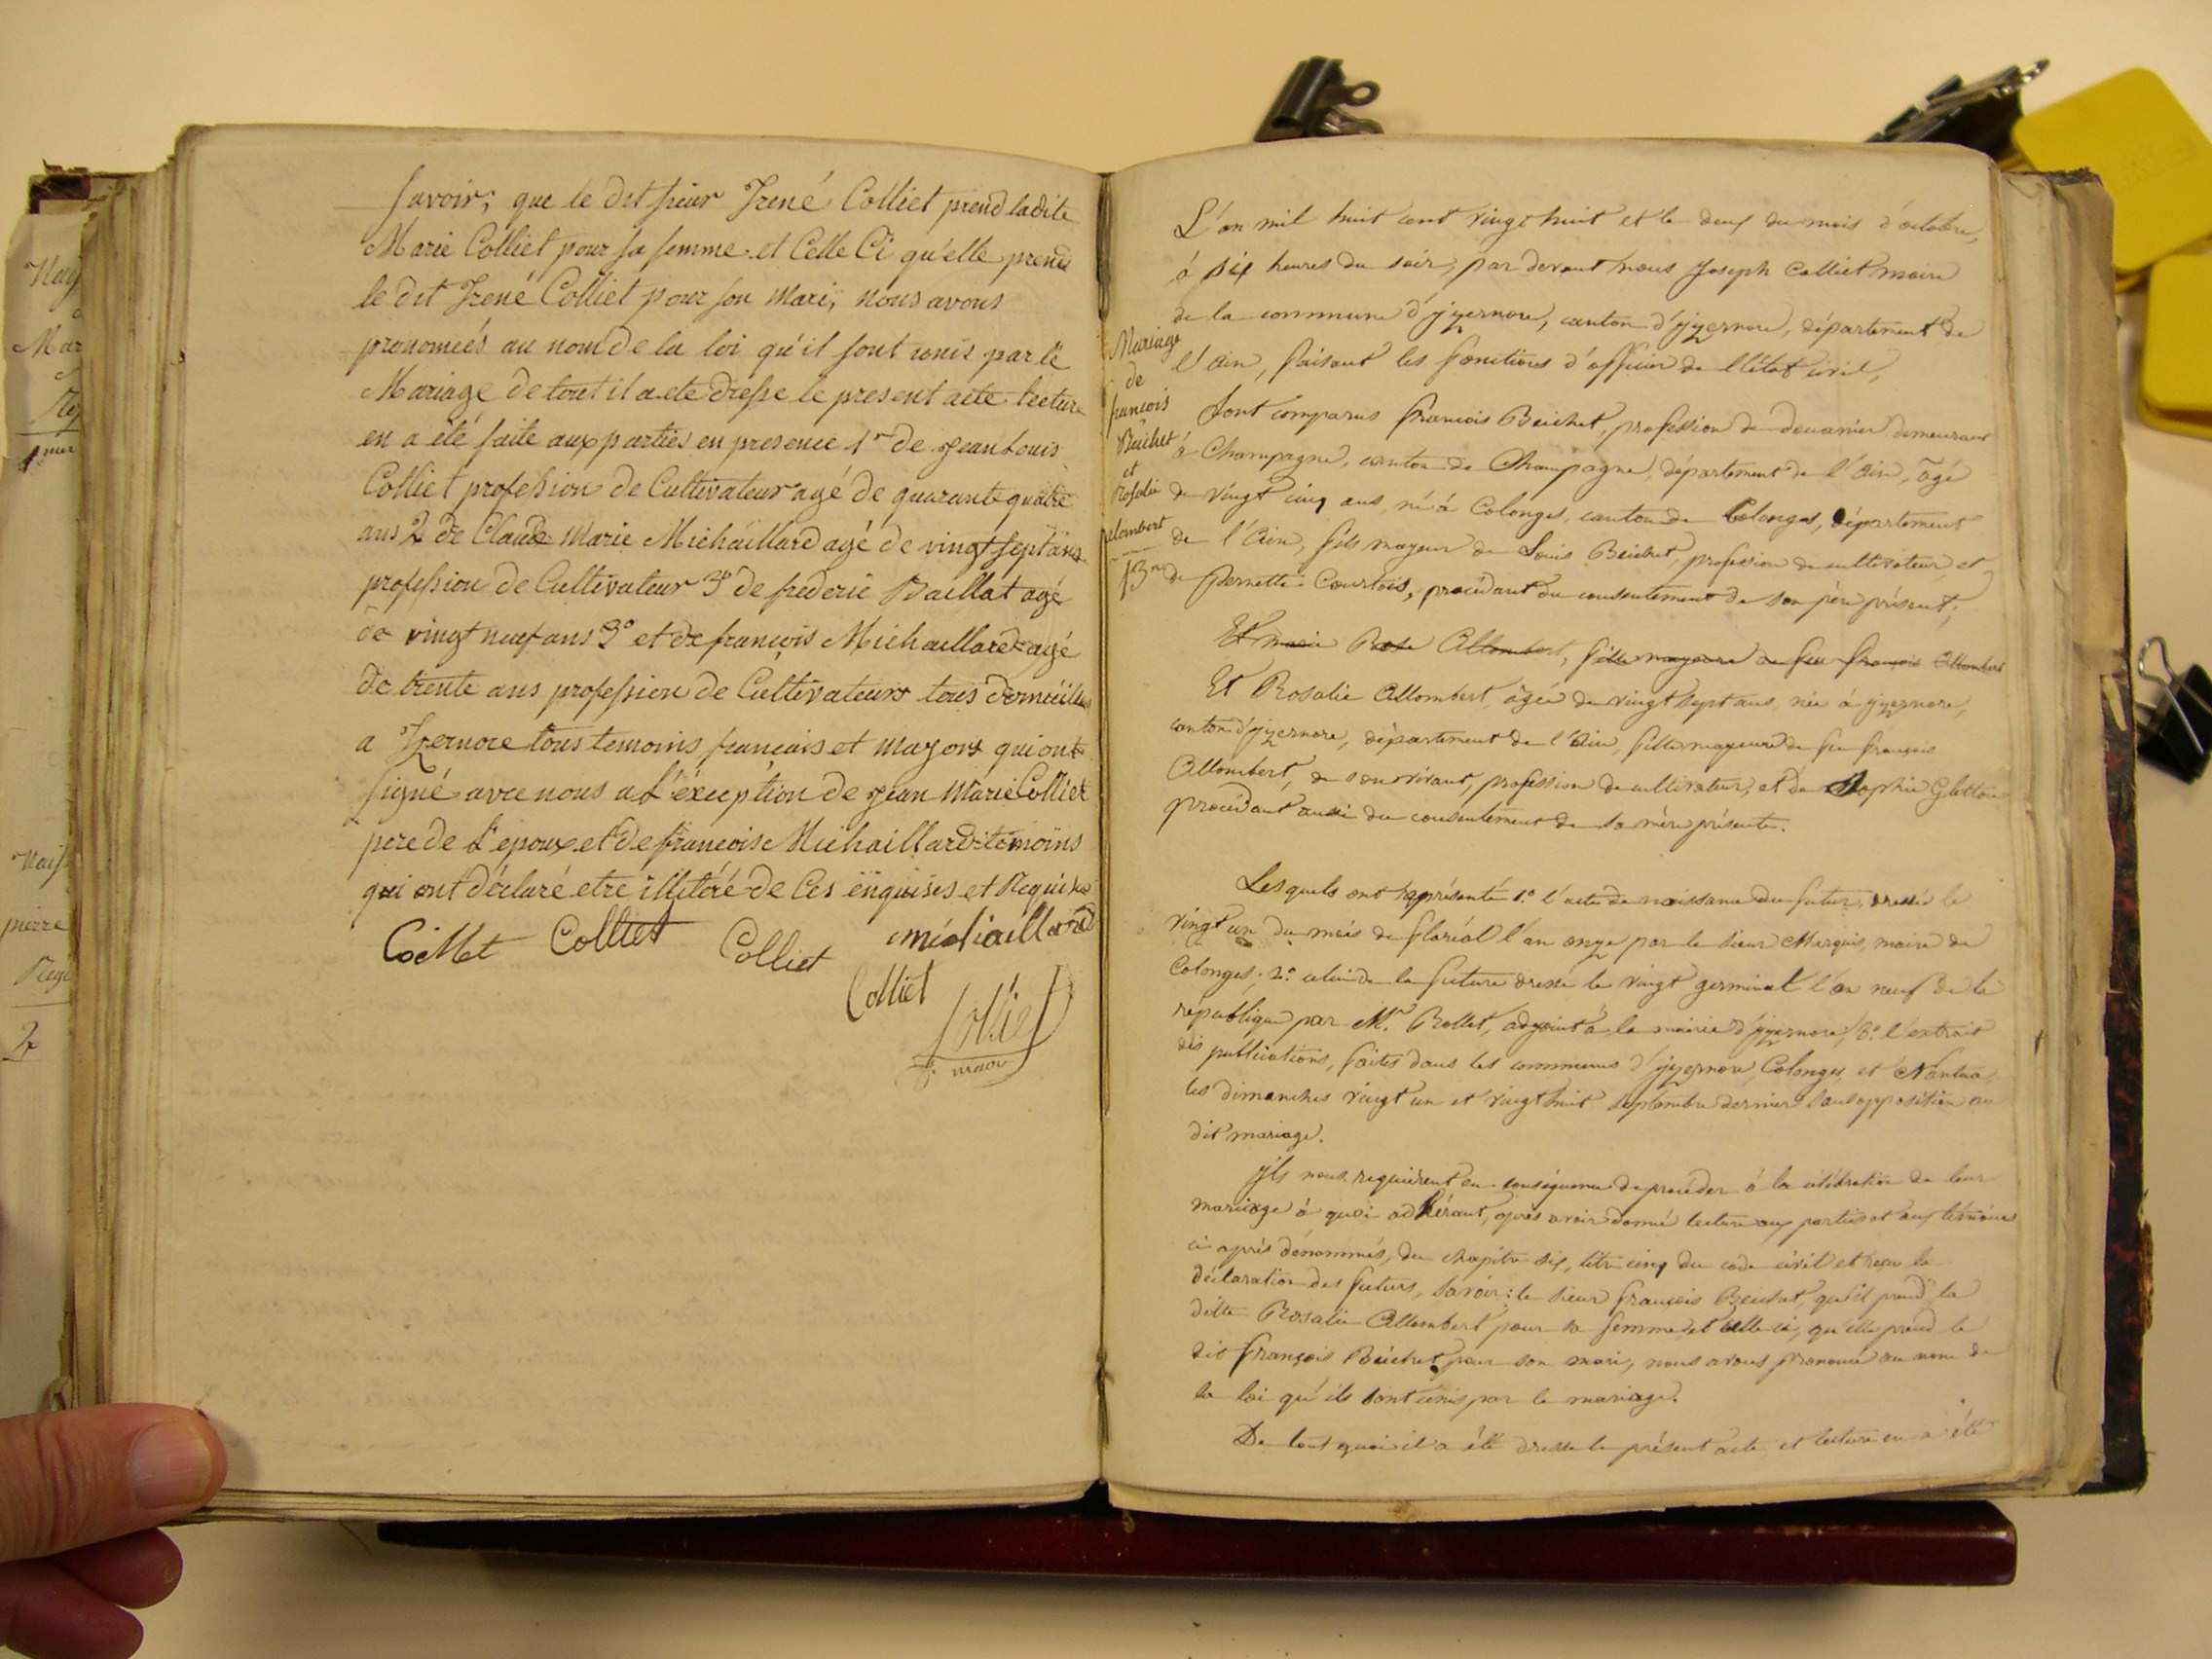 Savoir; que le dit sieur Irené Colliet prend ladite
Marie Colliet pour sa femme et Celle Ci qu'elle prend
le dit Irené Colliet pour son mari; nous avons
pronomcés au nom de la loi qu'il sont unis par le
Mariage de tout il a ete dresse le present acte lecture
en a été faite aux parties en presence 1er de jean Louis
Colliet profession de Cultivateur agé de quarante quatre
ans 2 de Claude Marie Michaillard agé de vingt sept ans
profession de Cultivateur 3° de frederic Baillat agé
de vingt neuf ans 3° et de françois Michaillard agé
de trente ans profession de Cultivateurs tous
a Izernore tous temoins français et mayors qui ont
signé avec nous a L'éxception de jean Marie Colliet
pere de L'epoux et de françois Michaillard temoins
qui ont déclaré etre illiteré de Ces enquises et Requises
Colliet Colliet michaillard
Colliet
Colliet
Colliet
maire
Nais
Mar
1mier
Naiss
pierre
2
Mariage
de
françois
Béichet
et
rosalie
allombert
13me
L'an mil huit cent vingt huit et le deux du mois d'octobre,
à six heures du soir, par devant nous Joseph Colliet maire
de la commune d'yzernore, canton d'yzernore, département de
l'ain, faisant les fonctions d'officier de l'état civil,
Sont comparus françois Béichet, profession de douanier demeurant
à Champagne, canton de Champagne, département de l'ain, âgé
de vingt cinq ans, né à Colonges, canton de Colonges, département
de l'ain, fils mayeur de Louis Béichet, profession de cultivateur et
de Pernette Courtois, procédant du consentement de son père présent;
Et marie Rose Allombert, fille mayeure de feu françois Allombert
Et Rosalie Allombert, âgée de vingt sept ans, née à yzernore,
canton d'yzernore, département de l'ain, fille mayeure de feu françois
Allombert, de son vivant, profession de cultivateur, et de Sophie Gletton
procédant aussi du consentement de sa mère présente.
Lesquels ont représenté 1° l'acte de naissance du futur, dressé le
vingt un du mois de floréal l'an onze par le sieur Marquis, maire de
Colonges; 2° celui de la future dressé le vingt germinal l'an neuf de la
république par Mr. Rollet, adjoint à la mairie d'yzernore; 3° l'extrait
des publications, faites dans les communes d'yzernore, Colonges et Nantua
les dimanches vingt un et vingt huit septembre dernier sans opposition au
dit mariage.
Ils nous requièrent en conséquence de procéder à la célébration de leur
mariage à quoi adhérant, après avoir donné lecture aux parties et aux témoins
ci après dénommés, du chapitre six, titre cinq du code civil et reçu la
déclaration des futurs, savoir: le sieur françois Béichet, qu'il prend la
dite Rosalie Allombert pour sa femme et celle ci, qu'elle prend le
dit françois Béichet pour son mari, nous avons prononcé au nom de
la loi qu'ils sont unis par le mariage.
De tout quoi il a été dressé le présent acte et lecture en a été